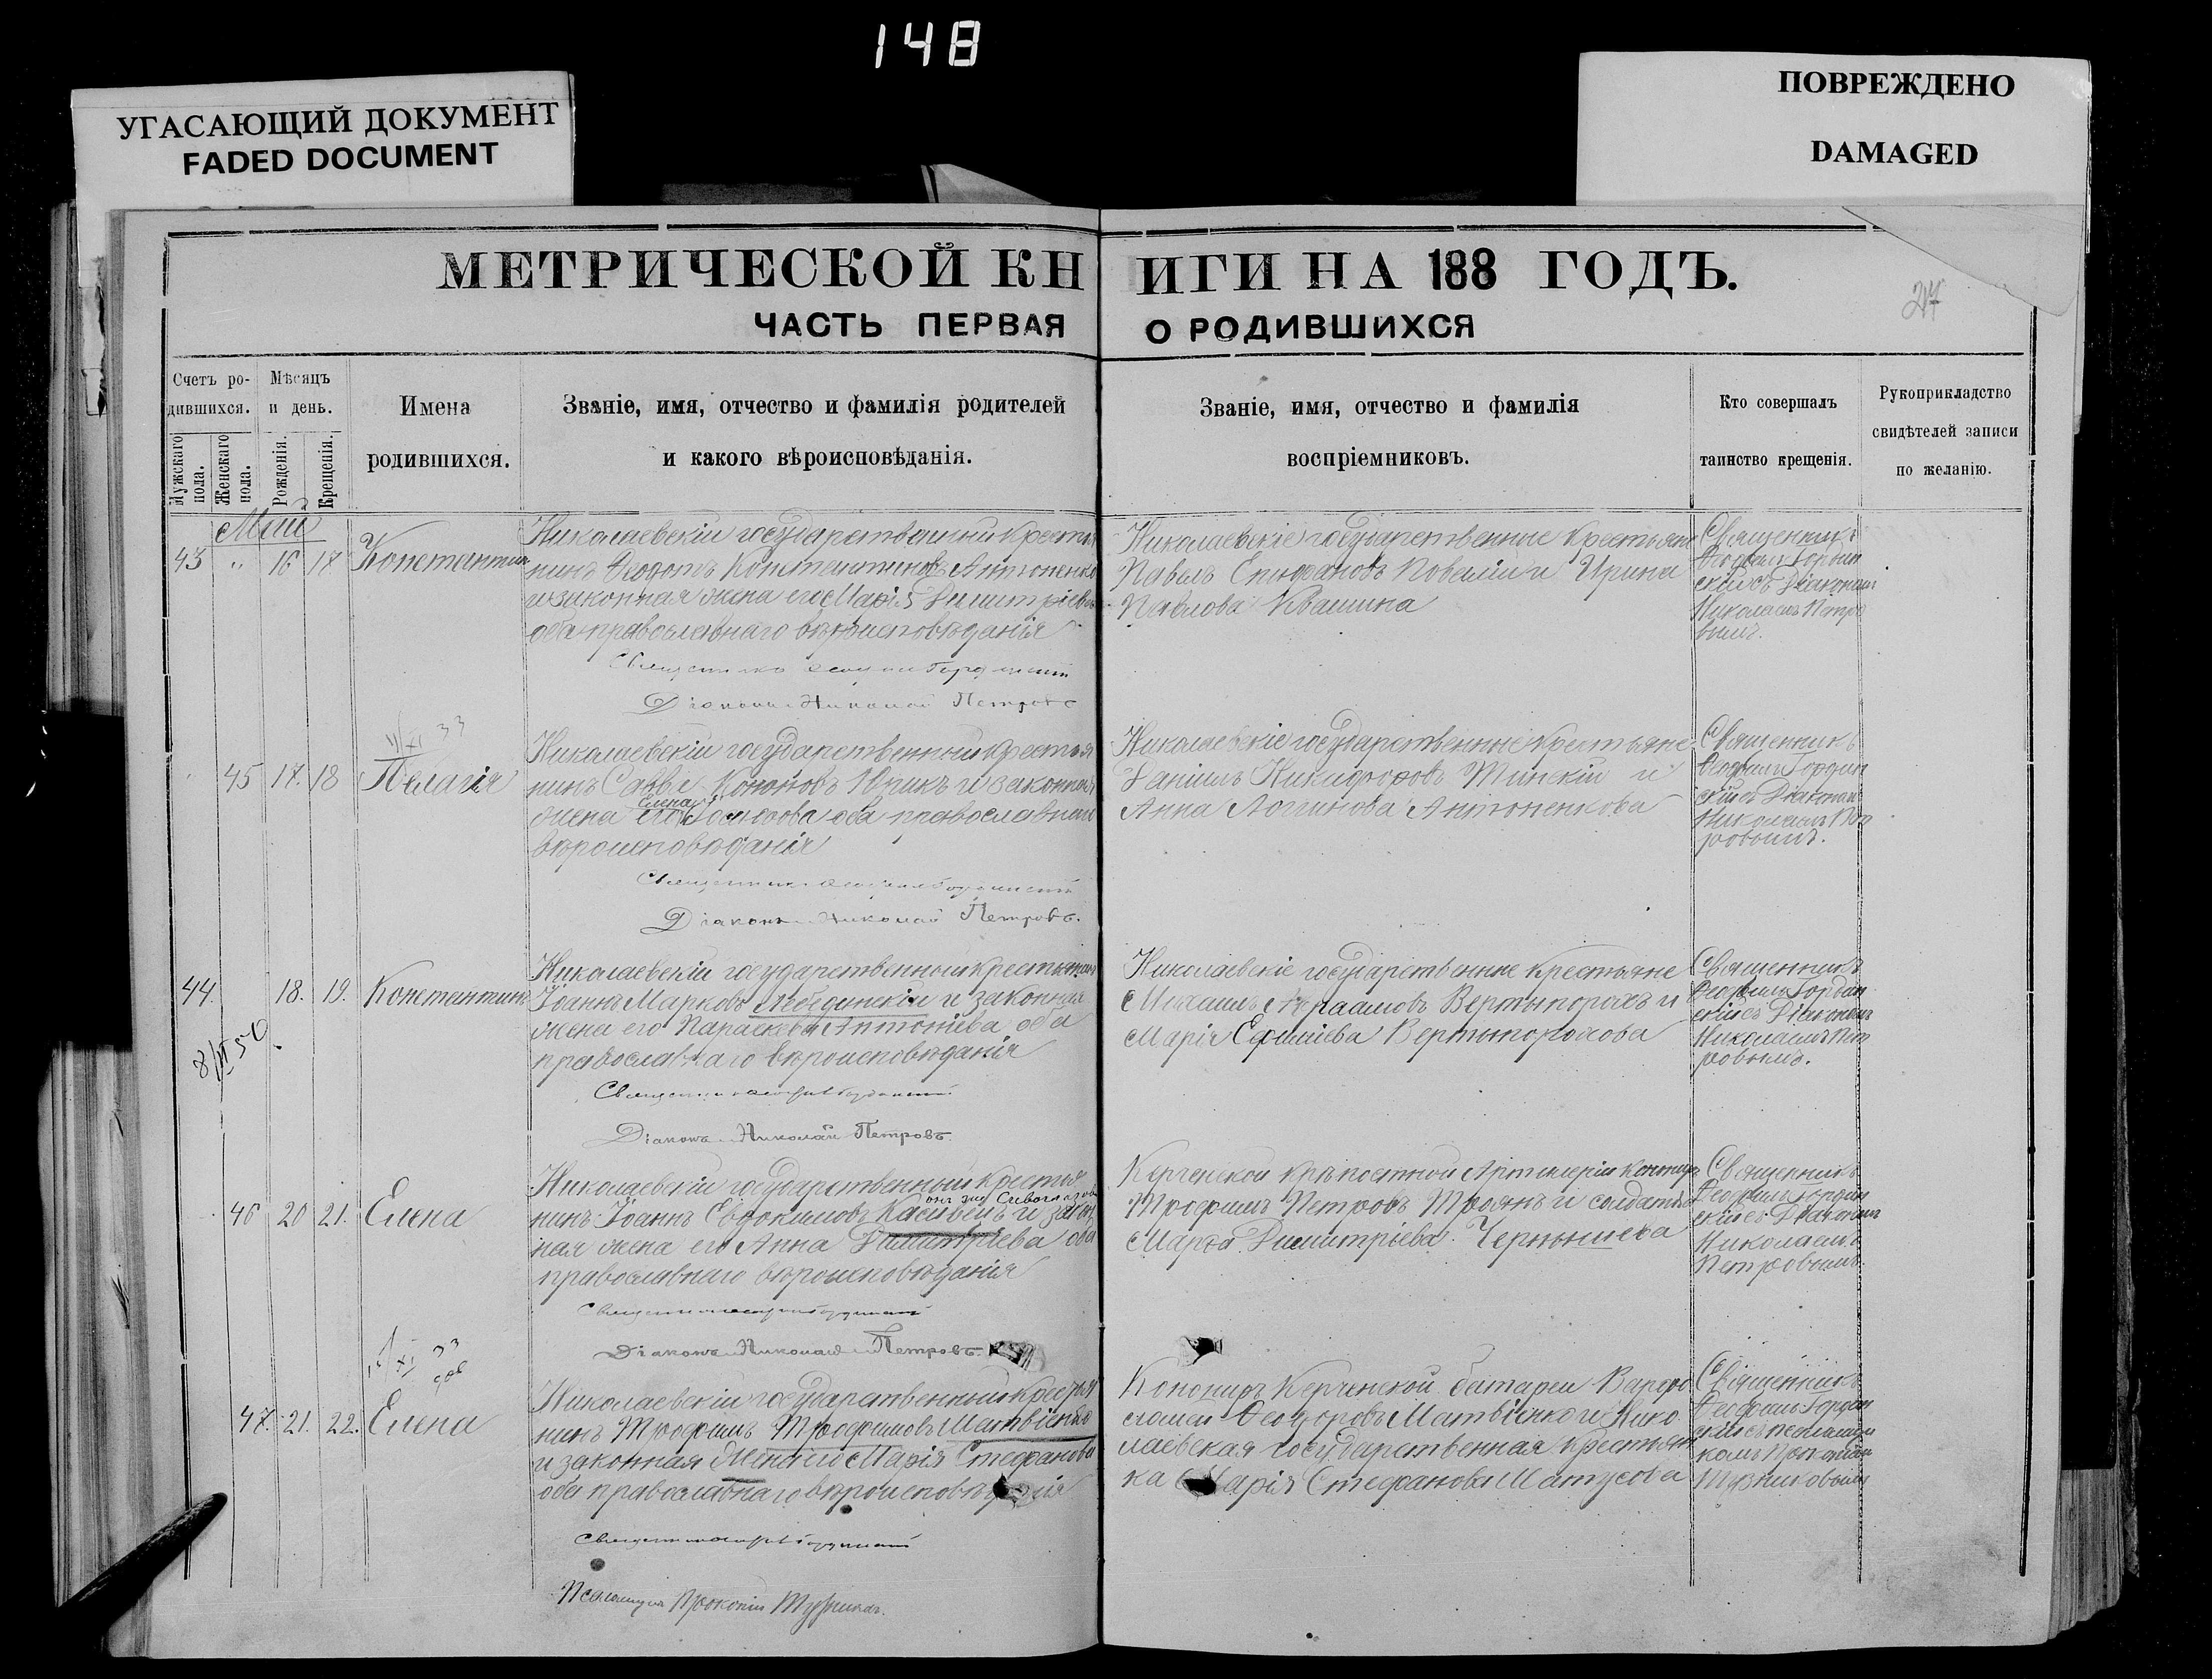 148
УГАСАЮЩИЙ ДОКУМЕНТ
FADED DOCUMENT
ПОВРЕЖДЕНО
DAMAGED
МЕТРИЧЕСКОЙ КНИГИ НА 188 ГОДЪ.
27
ЧАСТЬ ПЕРВАЯ О РОДИВШИХСЯ
Счетъ ро-
дившихся.
Мужскаго пола.
Женскаго пола.
Мѣсяцъ
и день.
Рожденія.
Крещенія.
Имена
родившихся.
Званіе, имя, отчество и фамилія родителей
и какого вѣроисповѣданія.
Званіе, имя, отчество и фамилія
воспріемниковъ.
Кто совершалъ
таинство крещенія.
Рукоприкладство
свидѣтелей записи
по желанію.
Май
43 " 16 17 Константин
Николаевскій государственный крестья
нинъ Ѳедотъ Константиновъ Антоненко
и законная жена его Марія Димитріева
оба православнаго вѣроисповѣданія
Діаконъ Николай Петровъ
Николаевскіе государственные крестьяне
Павелъ Епифановъ и Ирина
Павлова Квашина
Священникъ
Ѳеофилъ
скій съ Діакономъ
Николаемъ Петро
вымъ.
11/XI 33
45 17. 18 Пелагія
Николаевскій государственный крестья
нинъ Савва Кононовъ и законная
Елена
жена его оба православнаго
вѣроисповѣданія
Діаконъ Николай Петровъ.
Николаевскіе государственные крестьяне
Даніилъ Никифоровъ Тинскій и
Анна Логгинова Антоненкова
Священникъ
Ѳеофилъ
скій съ Діаконом
Николаемъ Пет
ровымъ.
44. 18. 19. Константинъ
8/II 50
Николаевскій государственный крестьянин
Іоаннъ Марковъ Лебединскій и законная
жена его Параскева Антоніева оба
православнаго вѣроисповѣданія
Діаконъ Николай Петровъ.
Николаевскіе государственные крестьяне
Михаилъ Авраамовъ Вертыпорохъ и
Марія Евфиміева Вертыпорохова
Священникъ
Ѳеофилъ
скій съ Діакономъ
Николаемъ Пет
ровымъ.
46 20 21. Елена
Николаевскій государственный крестья
онъ же
нинъ Іоаннъ Евдокимовъ и закон
ная жена его Анна Димитріева оба
православнаго вѣроисповѣданія
Діаконъ Николай Петровъ.
Керченской крѣпостной Артилеріи
Трофимъ Петровъ Троянъ и солдатка
Марѳа Димитріева Чернышева
Священникъ
Ѳеофилъ
скій съ Діакономъ
Николаемъ
Петровымъ.
47. 21. 22. Елена
Николаевскій государственный крестья
нинъ Трофимъ Трофимовъ Матвіенко
и законная жена его Марія Стефанова
оба православнаго вѣроисповѣданія
Псаломщикъ Прокопій
Конониръ Керченской батареи Варѳо
ломей Ѳеодоровъ Матвіенко и Нико
лаевская государственная крестьян
ка Марія Стефанова Матусова
Священникъ
Ѳеофилъ
скій съ псаломщи
комъ